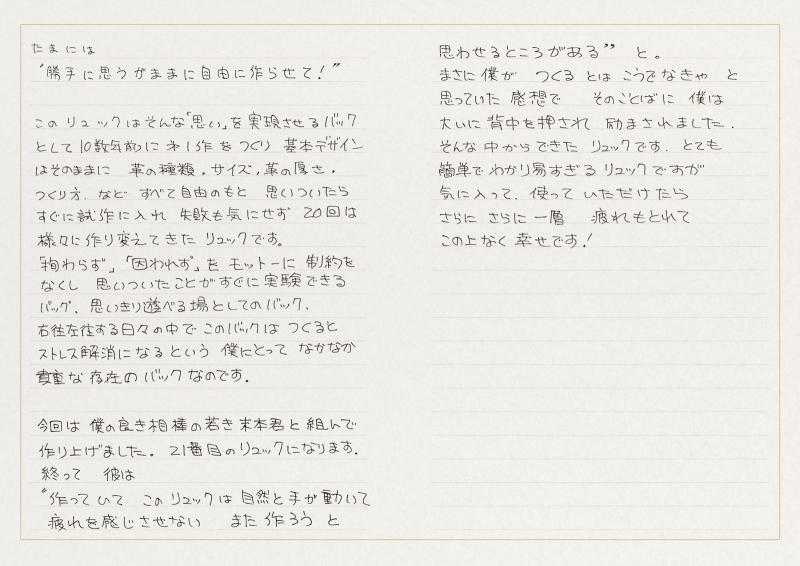 たまには
“勝手に思うがままに自由に作らせて！”
このリュックはそんな「思い」を実現させるバック
として10数年前に オ1作をつくり 基本デザイン
はそのままに 革の種類．サイズ，革の厚さ．
つくり方．など すべて自由のもと 思いついたら
すぐに試作に入れ 失敗も気にせず 20回は
様々に作り変えてきた リュックです。
「拘わらず」「囚われず」を モットーに 制約を
なくし 思いついたことがすぐに実験できる
バッグ．思いきり遊べる場としてのバック．
右往左往する日々の中で このバックは つくると
ストレス解消になるという 僕にとって なかなか
貴重な存在の バックなのです．
今回は 僕の良き相棒の若き末本君と組んで
作り上げました．21番目のリュックになります．
終って 彼は
“作っていて このリュックは自然と手が動いて
疲れを感じさせない また作ろう と
思わせるところがある” と。
まさに僕が つくるとは こうでなきゃ と
思っていた 感想で そのことばに 僕は
大いに背中を押され 励まされました．
そんな中からできた リュックです．とても
簡単でわかり易すぎる リュックですが
気に入って．使って いただけたら
さらに さらに一層 疲れもとれて
この上なく 幸せです！